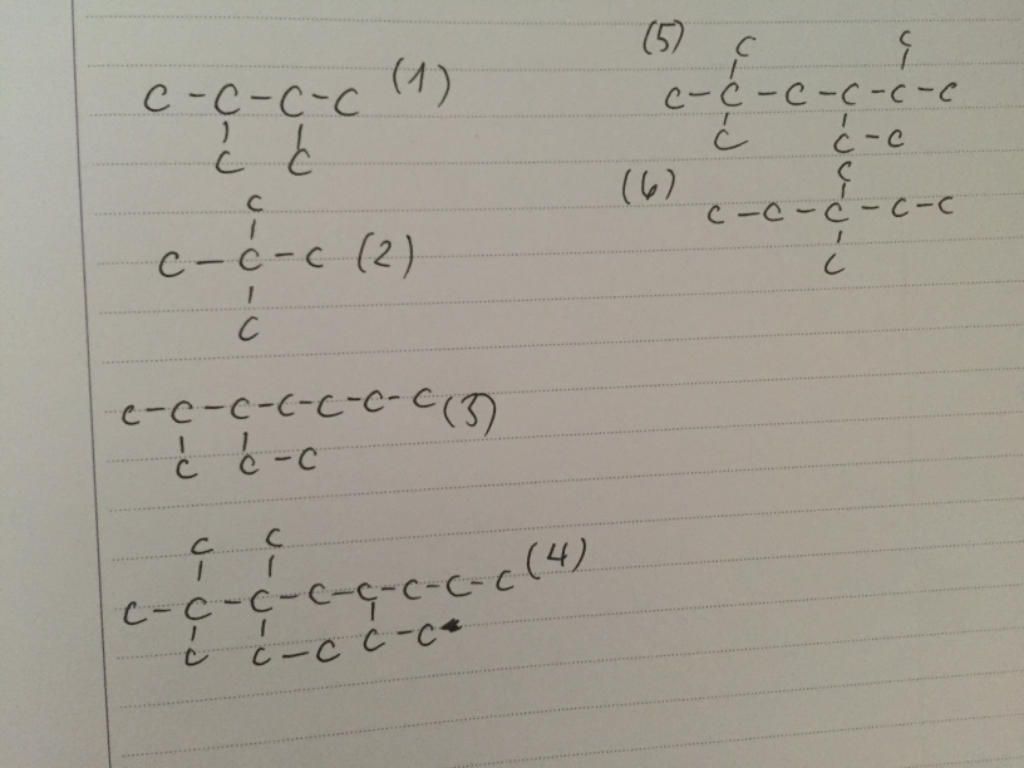 C-C-C-C (1)
C C
C
C-C-C (2)
C
C-C-C-C-C-C-C (3)
C C-C
C C
C-C-C-C-C-C-C-C (4)
C C-C C-C
(5) C C
C-C-C-C-C-C
C C-C
(6) C
C-C-C-C-C
C